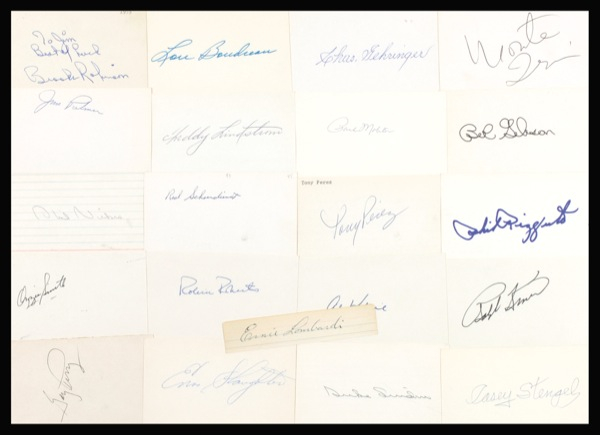 To Jim
Best of Luck
Brooks Robinson
Lou Boudreau
Chas. Gehringer
Monte
Irvin
Jim Palmer
Freddy Lindstrom
Bob Gibson
Red Schoendienst
Tony Perez
Tony Perez
Phil Rizzuto
Ozzie Smith
Robin Roberts
Ernie Lombardi
Gay Perry
Enos Slaughter
Duke Snider
Casey Stengel